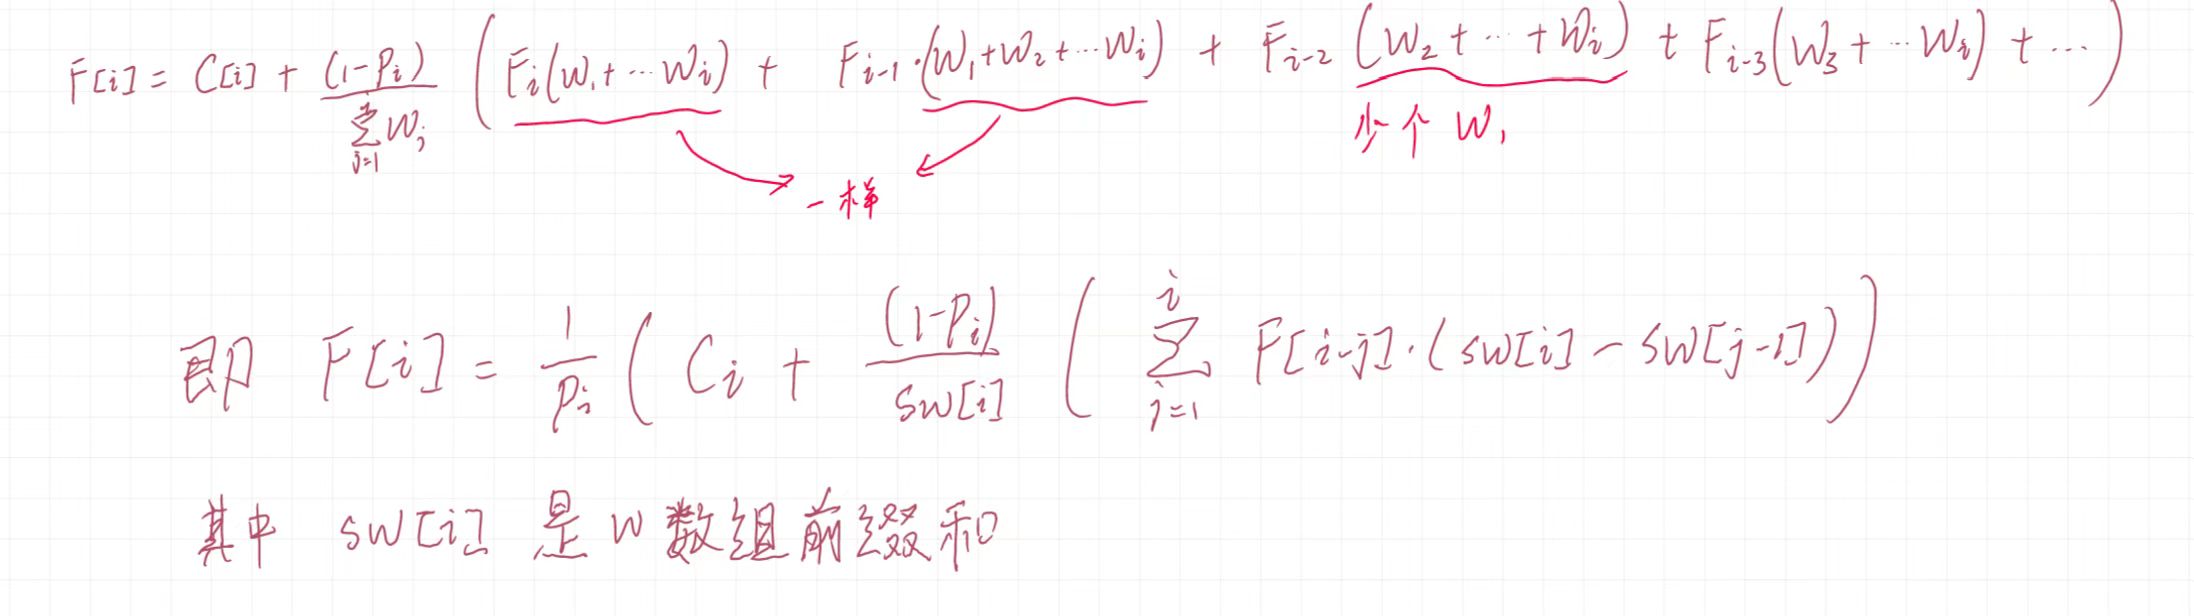 F[i] = C[i] + (1-Pi) / ∑_{j=1}^{i} Wj ( Fi(W1+…Wi) + Fi-1·(W1+W2+…Wi) + Fi-2 (W2+…+Wi) + Fi-3(W3+…Wi) + … )
少个 W1
一样
即 F[i] = 1/Pi ( Ci + (1-Pi)/SW[i] ( ∑_{j=1}^{i} F[i-j]·(SW[i] - SW[j-1]) ) )
其中 SW[i] 是 W 数组前缀和